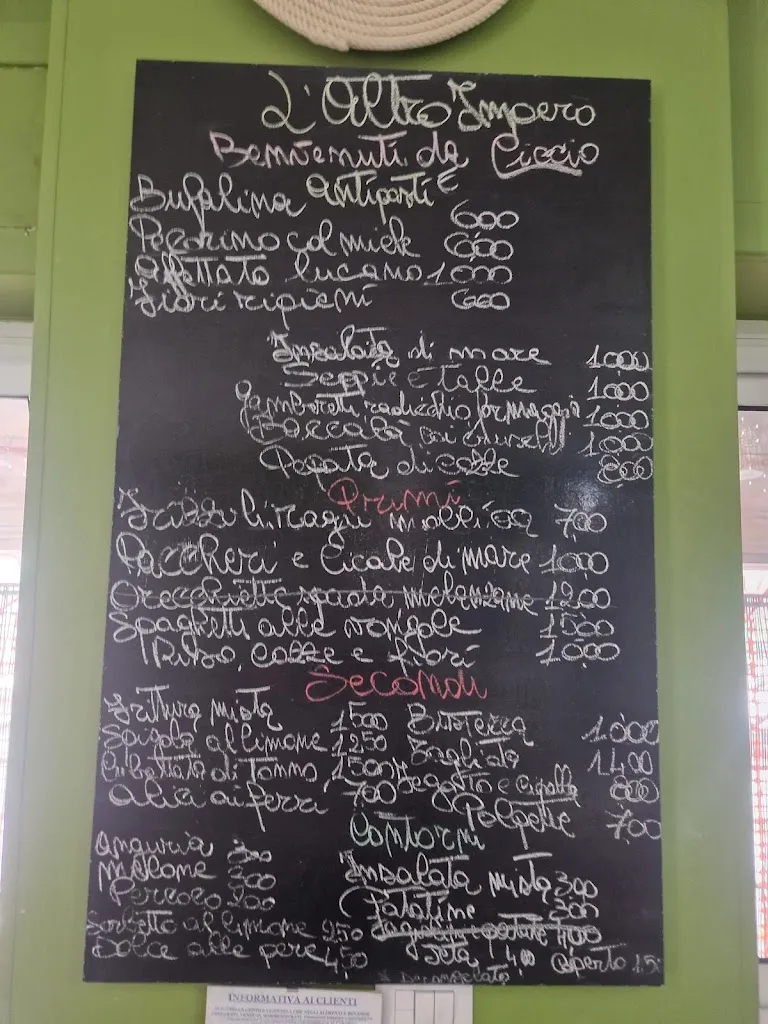 L'Altro Impero
Benvenuti da Ciccio
Antipasti €
Bufalina 600
Pecorino col miele 600
Affettato lucano 1000
Fiori ripieni 600
Insalata di mare 1000
Seppie e 1000
Gamberetti radicchio formaggio 1000
Baccalà 1000
Pepata di cozze 800
Primi
ragù mollica 700
Paccheri e Cicale di mare 1000
Orecchiette spada melanzane 1200
Spaghetti alle vongole 1500
Riso, cozze e fiori 1000
Secondi
Frittura mista 1500 Bistecca 1000
Spigola al limone 1250 Tagliata 1400
di Tonno 1500 Fegato e cipolla 800
Alici ai ferri 700 Polpette 700
Contorni
Anguria 300
Melone 300
Percoco 200
Insalata mista 300
Patatine 300
400
Sorbetto al limone 250
Dolce alle pere 450
Feta 400 Coperto 1,5
INFORMATIVA AI CLIENTI